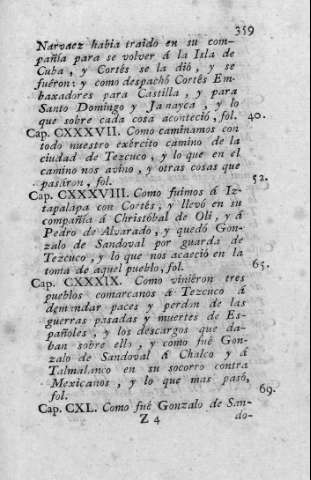 359
Narvaez habia traido en su com-
pañía para se volver á la Isla de
Cuba, y Cortés se la dió, y se
fuéron: y como despachó Cortés Em-
baxadores para Castilla, y para
Santo Domingo y Jamayca, y lo
que sobre cada cosa aconteció, fol. 40.
Cap. CXXXVII. Como caminamos con
todo nuestro exército camino de la
ciudad de Tezcuco, y lo que en el
camino nos avino, y otras cosas que
pasáron, fol. 52.
Cap. CXXXVIII. Como fuimos á Iz-
tapalapa con Cortés, y llevó en su
compañía á Christóbal de Oli, y á
Pedro de Alvarado, y quedó Gon-
zalo de Sandoval por guarda de
Tezcuco, y lo que nos acaeció en la
toma de aquel pueblo, fol. 65.
Cap. CXXXIX. Como viniéron tres
pueblos comarcanos á Tezcuco á
demandar paces y perdon de las
guerras pasadas y muertes de Es-
pañoles, y los descargos que da-
ban sobre ello, y como fué Gon-
zalo de Sandoval á Chalco y á
Talmalanco en su socorro contra
Mexicanos, y lo que mas pasó,
fol. 69.
Cap. CXL. Como fué Gonzalo de San-
Z 4 do-